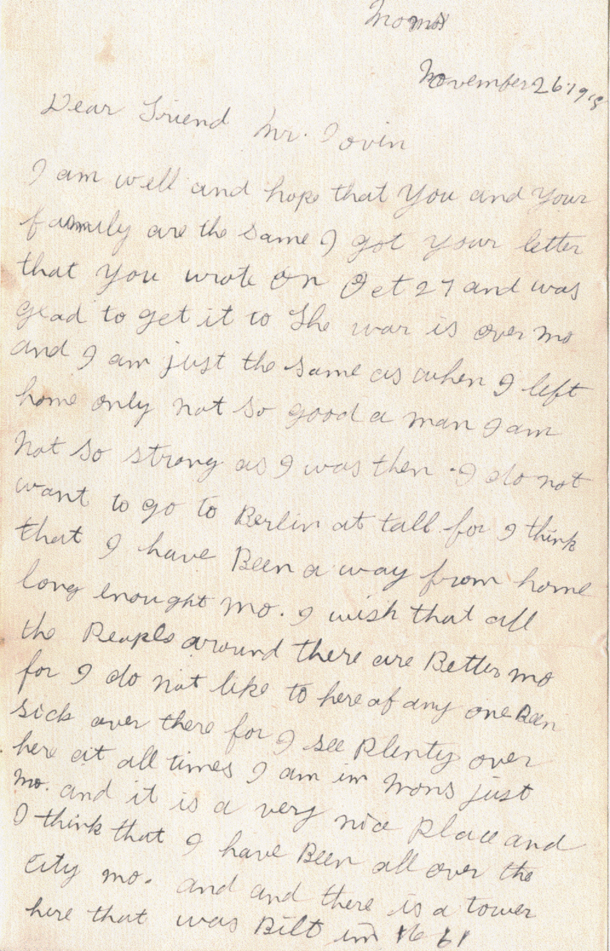 Mons
November 26, 1918
Dear Friend Mr. Iovin
I am well and hope that You and Your
family are the same I got your letter
that You wrote on Oct 27 and was
glad to get it to The war is over mo
and I am just the same as when I left
home only not so good a man I am
not so strong as I was then I do not
want to go to Berlin at tall for I think
that I have Been a way from home
long enought mo. I wish that all
the People around there are Better mo
for I do not like to here of any one Been
sick over there for I see Plenty over
here at all times I am in Mons just
mo. and it is a very nice Place and
I think that I have Been all over the
City mo. and and there is a tower
here that was Bilt in 1661